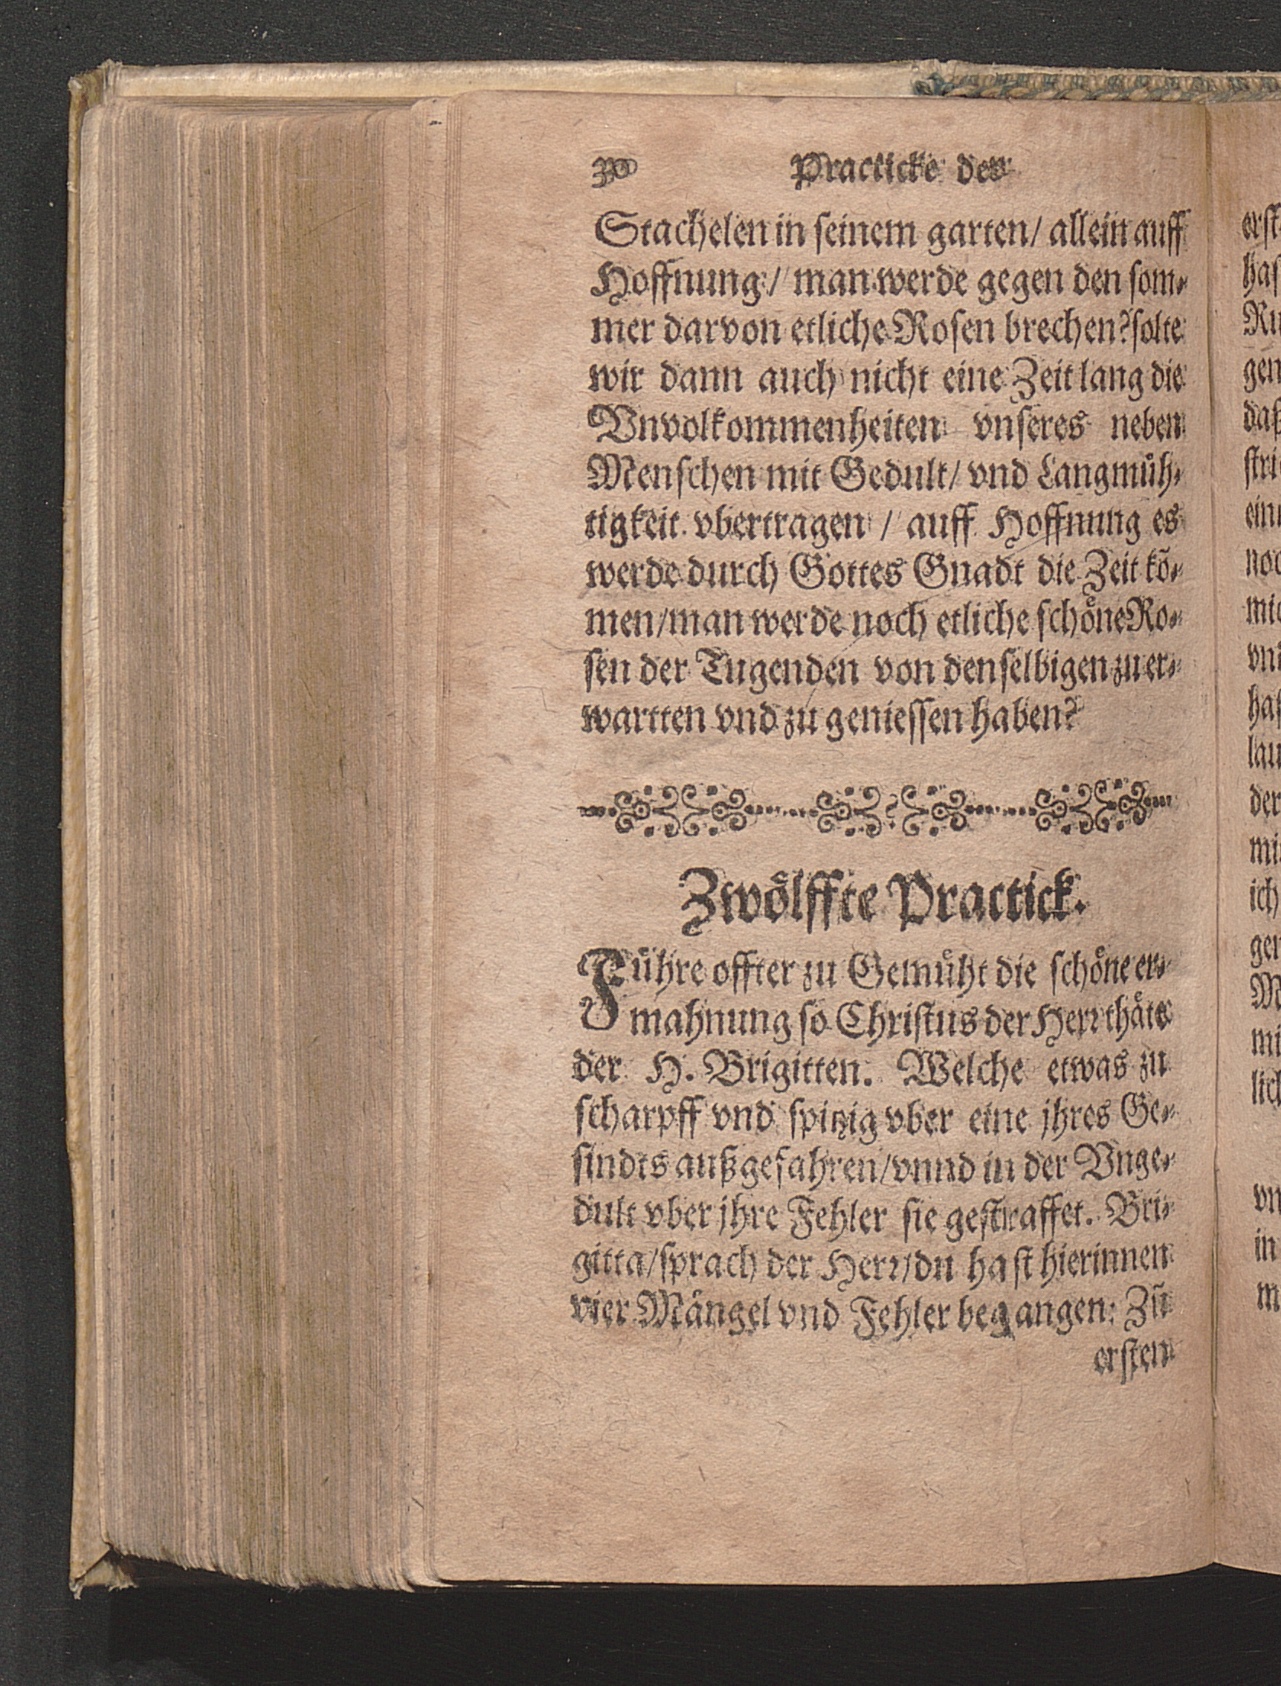 30 Practicke der
Stachelen in seinem garten/ allein auff
Hoffnung/ man werde gegen den som⸗
mer darvon etliche Rosen brechen? solte
wir dann auch nicht eine Zeit lang die
Vnvolkommenheiten vnseres neben
Menschen mit Gedult/ vnd Langmüh⸗
tigkeit vbertragen / auff Hoffnung es
werde durch Gottes Gnadt die Zeit kõ⸗
men/man werde noch etliche schöne Ro⸗
sen der Tugenden von denselbigen zu er⸗
wartten vnd zu geniessen haben?
Zwölffte Practick.
Führe offter zu Gemüht die schöne er⸗
mahnung so Christus der Herr thäte
der H. Brigitten. Welche etwas zu
scharpff vnd spitzig vber eine jhres Ge⸗
sindts außgefahren/vnnd in der Vnge⸗
dult vber jhre Fehler sie gestraffet. Bri⸗
gitta/sprach der Herr/du hast hierinnen
vier Mängel vnd Fehler begangen: Zũ
ersten
erst
has
Ru
gen
daß
stri
ein
noc
mic
vnd
hat
lau
der
mi
ich
gen
M
mi
lich
vn
in
m